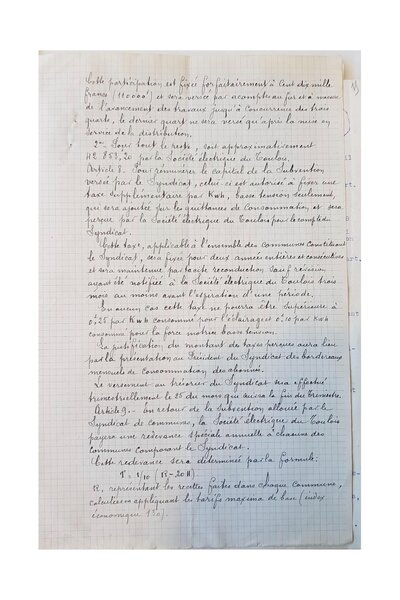 Cette participation est fixée forfaitairement à Cent dix mille
francs (110000f) et sera versée par acomptes au fur et à mesure
de l'avancement des travaux jusqu'à concurrence des trois
quarts, le dernier quart ne sera versé qu'après la mise en
service de la distribution.
2°- Pour tout le reste, soit approximativement
par la Société électrique du Toulois.
Article 8. Pour rémunérer le capital de la Subvention
versée par le Syndicat, celui-ci est autorisé à fixer une
taxe supplémentaire par Kwh, basse tension seulement,
qui sera ajoutée sur les quittances de Consommation et sera
perçue par la Société électrique du Toulois pour le compte du
Syndicat.
Cette taxe, applicable à l'ensemble des Communes constituant
le Syndicat, sera fixée pour deux années entières et consécutives
et sera maintenue par tacite reconduction sauf révision
ayant été notifiée à la Société électrique du Toulois trois
mois au moins avant l'expiration d'une période.
En aucun cas cette taxe ne pourra être supérieure à
0,25 par Kwh consommé pour l'éclairage et 0,10 par Kwh
consommé pour la force motrice basse tension.
La justification du montant de taxes perçues aura lieu
par la présentation au Président du Syndicat des bordereaux
mensuels de consommation des abonnés.
Le versement au trésorier du Syndicat sera effectué
trimestriellement le 25 du mois qui suivra la fin du trimestre.
Article 9.- En retour de la Subvention allouée par le
Syndicat de communes, la Société électrique du Toulois
payera une redevance spéciale annuelle à chacune des
communes composant le Syndicat.
Cette redevance sera déterminée par la formule:
r = 1/10 (R - 20 H)
R, représentant les recettes faites dans chaque Commune,
calculées en appliquant les tarifs maxima de base (index
économique 130).